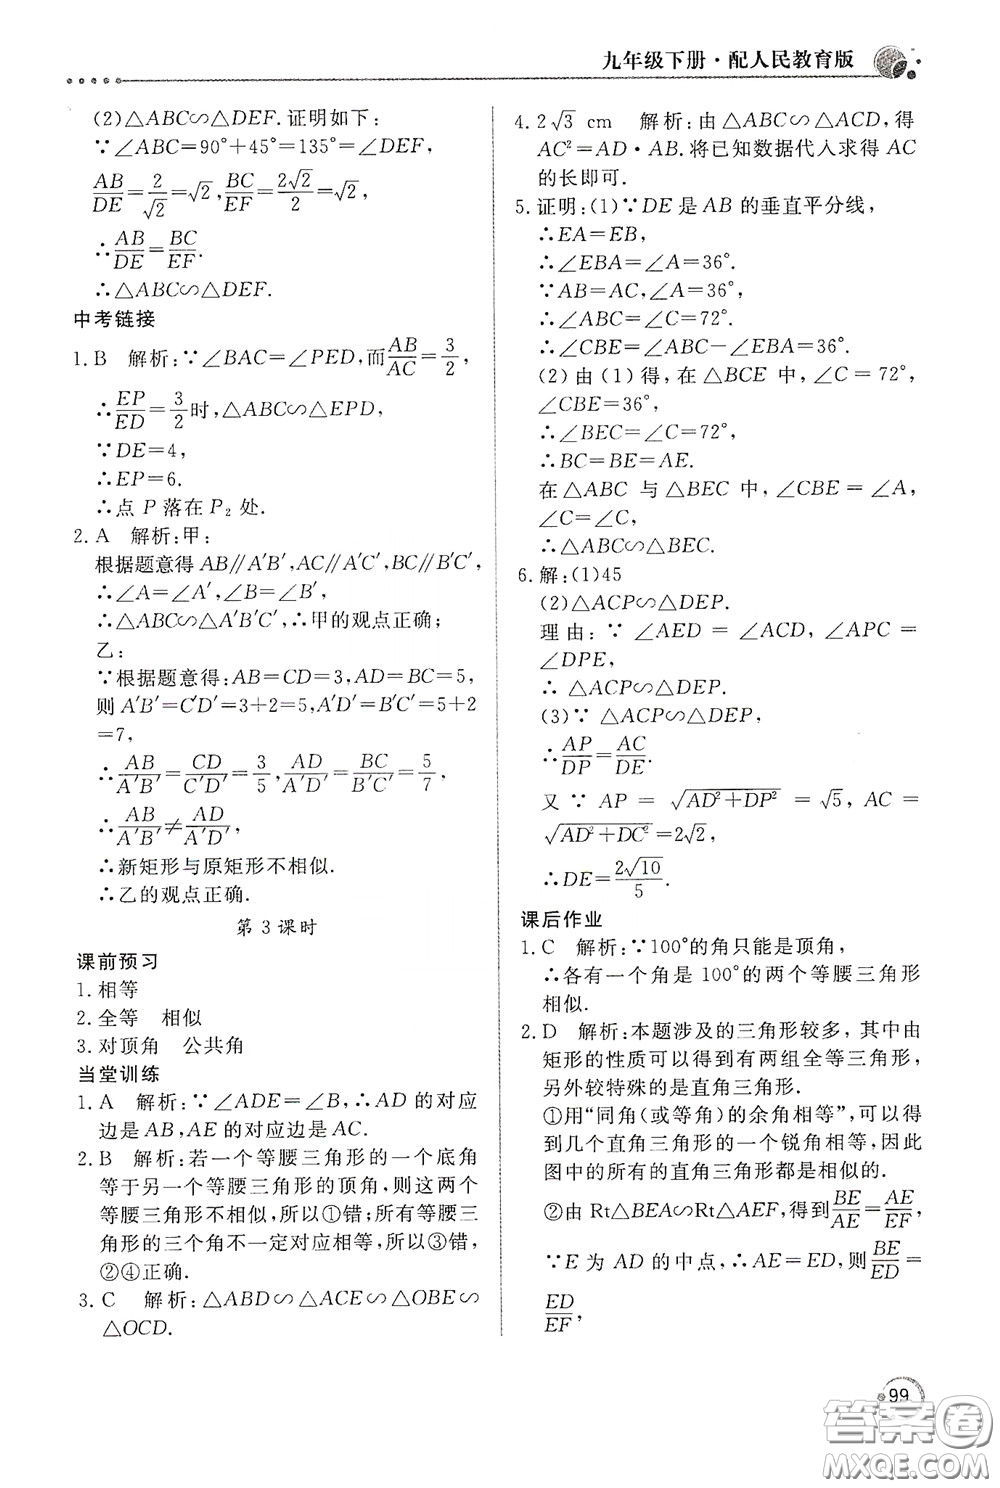 九年级下册·配人民教育版
(2)△ABC∽△DEF.证明如下:
∵∠ABC=90°+45°=135°=∠DEF,
AB/DE=2/√2=√2,BC/EF=2√2/2=√2,
∴AB/DE=BC/EF.
∴△ABC∽△DEF.
中考链接
1. B 解析:∵∠BAC=∠PED,而AB/AC=3/2,
∴EP/ED=3/2时,△ABC∽△EPD,
∵DE=4,
∴EP=6.
∴点 P 落在 P₂ 处.
2. A 解析:甲:
根据题意得 AB∥A′B′,AC∥A′C′,BC∥B′C′,
∴∠A=∠A′,∠B=∠B′,
∴△ABC∽△A′B′C′,∴甲的观点正确;
乙:
∵根据题意得:AB=CD=3,AD=BC=5,
则 A′B′=C′D′=3+2=5,A′D′=B′C′=5+2
=7,
∴AB/A′B′=CD/C′D′=3/5,AD/A′D′=BC/B′C′=5/7,
∴AB/A′B′≠AD/A′D′,
∴新矩形与原矩形不相似.
∴乙的观点正确.
第 3 课时
课前预习
1. 相等
2. 全等 相似
3. 对顶角 公共角
当堂训练
1. A 解析:∵∠ADE=∠B,∴AD 的对应
边是 AB,AE 的对应边是 AC.
2. B 解析:若一个等腰三角形的一个底角
等于另一个等腰三角形的顶角,则这两个
三角形不相似,所以①错;所有等腰三
角形的三个角不一定对应相等,所以③错,
②④正确.
3. C 解析:△ABD∽△ACE∽△OBE∽
△OCD.
4. 2√3 cm 解析:由△ABC∽△ACD,得
AC²=AD·AB.将已知数据代入求得 AC
的长即可.
5. 证明:(1)∵DE 是 AB 的垂直平分线,
∴EA=EB,
∴∠EBA=∠A=36°.
∵AB=AC,∠A=36°,
∴∠ABC=∠C=72°.
∴∠CBE=∠ABC-∠EBA=36°.
(2)由(1)得,在△BCE 中,∠C=72°,
∠CBE=36°,
∴∠BEC=∠C=72°,
∴BC=BE=AE.
在△ABC 与△BEC 中,∠CBE=∠A,
∠C=∠C,
∴△ABC∽△BEC.
6. 解:(1)45
(2)△ACP∽△DEP.
理由:∵∠AED=∠ACD,∠APC=
∠DPE,
∴△ACP∽△DEP.
(3)∵△ACP∽△DEP,
∴AP/DP=AC/DE.
又∵AP=√(AD²+DP²)=√5,AC=
√(AD²+DC²)=2√2,
∴DE=2√10/5.
课后作业
1. C 解析:∵100°的角只能是顶角,
∴各有一个角是 100°的两个等腰三角形
相似.
2. D 解析:本题涉及的三角形较多,其中由
矩形的性质可以得到有两组全等三角形,
另外较特殊的是直角三角形.
①用“同角(或等角)的余角相等”,可以得
到几个直角三角形的一个锐角相等,因此
图中的所有的直角三角形都是相似的.
②由 Rt△BEA∽Rt△AEF,得到BE/AE=AE/EF,
∵E 为 AD 的中点,∴AE=ED,则BE/ED=
ED/EF,
99
答案圈
MXQE.COM